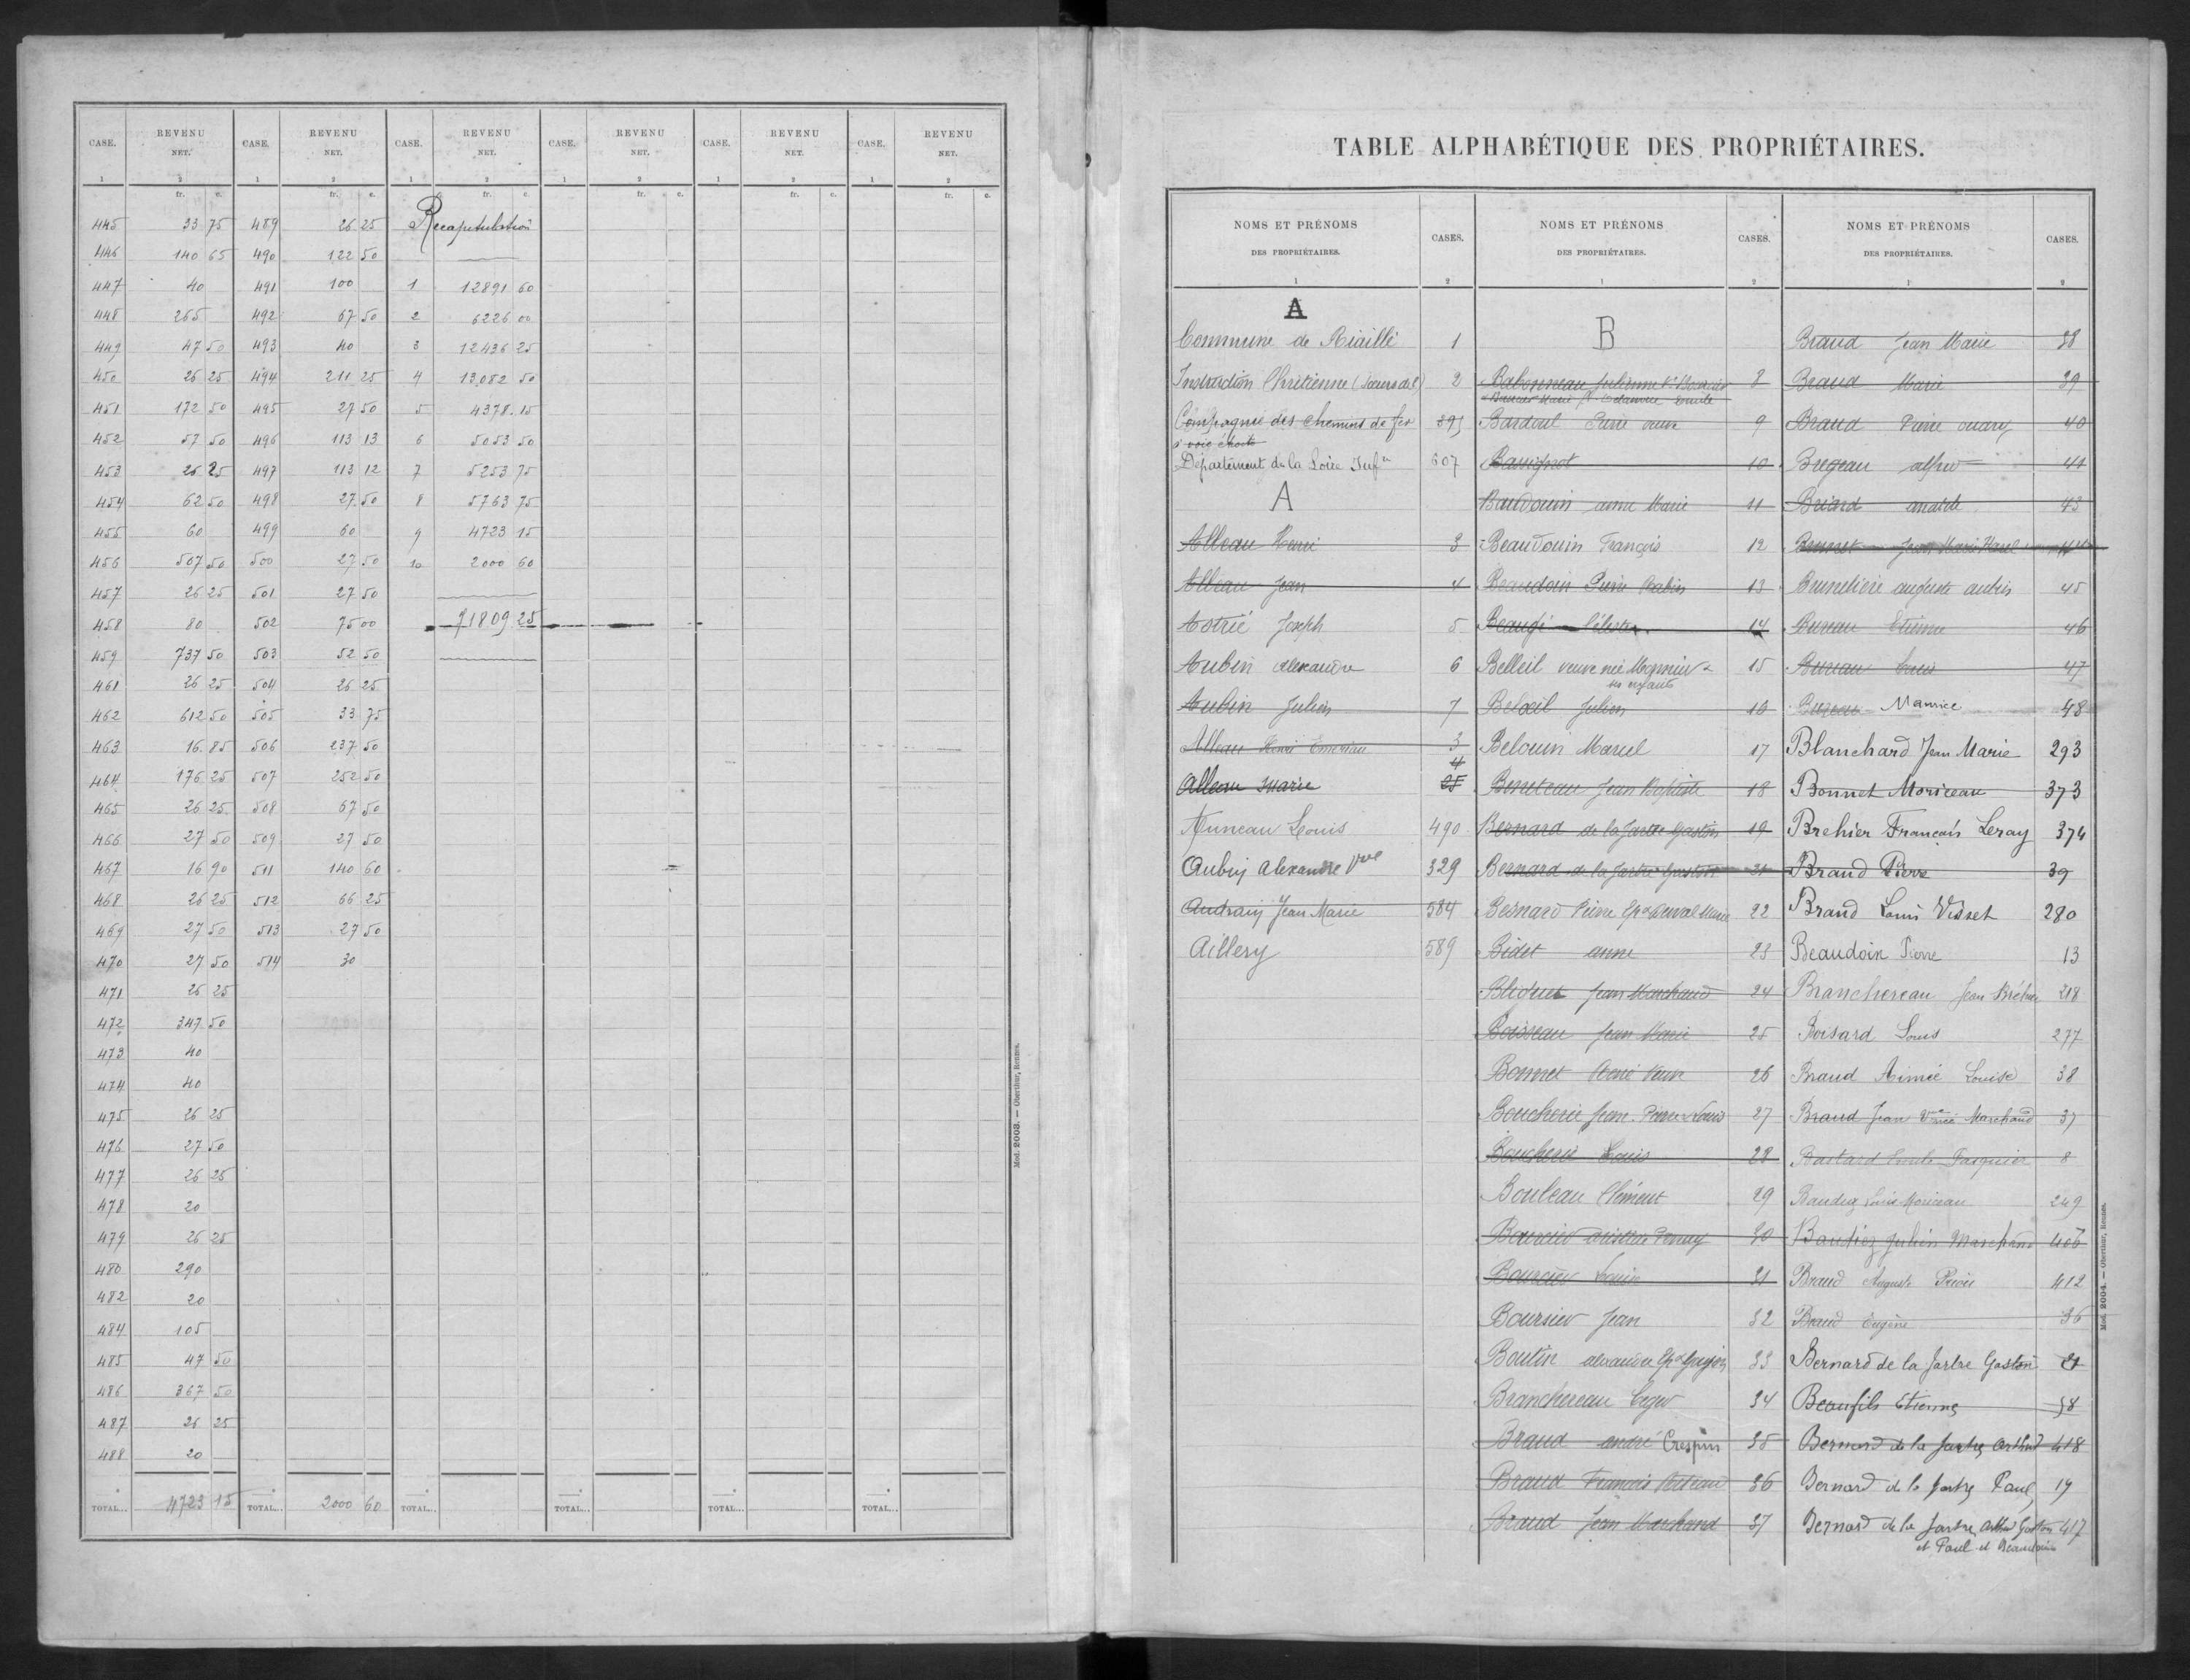 CASE. REVENU NET. CASE. REVENU NET. CASE. REVENU NET. CASE. REVENU NET. CASE. REVENU NET. CASE. REVENU NET.
1 2 1 2 1 2 1 2 1 2 1 2
fr. c. fr. c. fr. c. fr. c. fr. c. fr. c.
445 33 75 489 26 25 Recapitulation
446 140 65 490 122 50
447 40 491 100 1 12891 60
448 265 492 67 50 2 6226 00
449 47 50 493 40 3 12436 25
450 26 25 494 211 25 4 13082 50
451 172 50 495 27 50 5 4378 15
452 57 50 496 113 13 6 5053 50
453 26 25 497 113 12 7 5253 75
454 62 50 498 27 50 8 5763 75
455 60 499 60 9 4723 15
456 507 50 500 27 50 10 2000 60
457 26 25 501 27 50
458 80 502 75 00 71809 25
459 737 50 503 52 50
461 26 25 504 26 25
462 612 50 505 33 75
463 16 85 506 237 50
464 176 25 507 252 50
465 26 25 508 67 50
466 27 50 509 27 50
467 16 90 511 140 60
468 26 25 512 66 25
469 27 50 513 27 50
470 27 50 514 30
471 26 25
472 347 50
473 40
474 40
475 26 25
476 27 50
477 26 25
478 20
479 26 25
480 290
482 20
484 105
485 47 50
486 367 50
487 26 25
488 20
TOTAL... 4723 15 TOTAL... 2000 60 TOTAL... TOTAL... TOTAL... TOTAL...
Mod. 2003. — Oberthur, Rennes.
TABLE ALPHABÉTIQUE DES PROPRIÉTAIRES.
NOMS ET PRÉNOMS DES PROPRIÉTAIRES. CASES. NOMS ET PRÉNOMS DES PROPRIÉTAIRES. CASES. NOMS ET PRÉNOMS DES PROPRIÉTAIRES. CASES.
1 2 1 2 1 2
A
Commune de Riaillé 1
Instruction Chrétienne (Sœurs de l') 2
Compagnie des chemins de fer 395
à voie étroite
Département de la Loire Infre 607
A
Alleau Henri 3
Alleau Jean 4
Astrié Joseph 5
Aubin Alexandre 6
Aubin Julien 7
Alleau Henri 3
4
Alleau Marie 25
Auneau Louis 490
Aubin Alexandre Vve 329
Audrain Jean Marie 584
Aillery 589
B
Rabonneau Julienne 8
Bardoul Pierre veuve 9
Bauignot 10
Baudouin anne Marie 11
Beaudouin François 12
Beaudoin Pierre Rabin 13
Beaugé Céleste 14
Belleil veuve née
ses enfants 15
Beloeil Julien 16
Belouin Marcel 17
Beneteau Jean Baptiste 18
Bernard de la Jartre Gaston 19
Bernard de la Jartre Gaston 21
Bernard Pierre 22
Bidet anne 23
Bliguet Jean Marchand 24
Boisseau Jean Marie 25
Bonnet René 26
Boucherie Jean Pierre Louis 27
Boucherie Louis 28
Bouleau Clément 29
Boursier 30
Boursier Louis 31
Boursier Jean 32
Boutin alexandre 33
Branchereau 34
Braud andré Crespin 35
Braud François 36
Braud Jean Marchand 37
Braud Jean Marie 38
Braud Marie 39
Braud Pierre 40
Bregeau alfred 41
Briard 43
Brunet Jean Marie 44
Brunelière auguste aubin 45
Bureau Etienne 46
Bureau Louis 47
Bureau Maurice 48
Blanchard Jean Marie 293
Bonnet Moriceau 373
Brehier François Leray 374
Braud Pierre 39
Braud Louis Visset 280
Beaudoin Pierre 13
Branchereau Jean 218
Boisard Louis 277
Braud Aimée Louise 38
Braud Jean Vve née Marchand 37
Bastard 8
Baudez Moriceau 249
Baudiez Julien Marchand 406
Braud Auguste 412
Braud Eugène 36
Bernard de la Jartre Gaston 21
Beaufils Etienne 58
Bernard de la Jartre Arthur 418
Bernard de la Jartre Paul 19
Bernard de la Jartre Arthur Gaston 417
et Paul et
Mod. 2004. — Oberthur, Rennes.